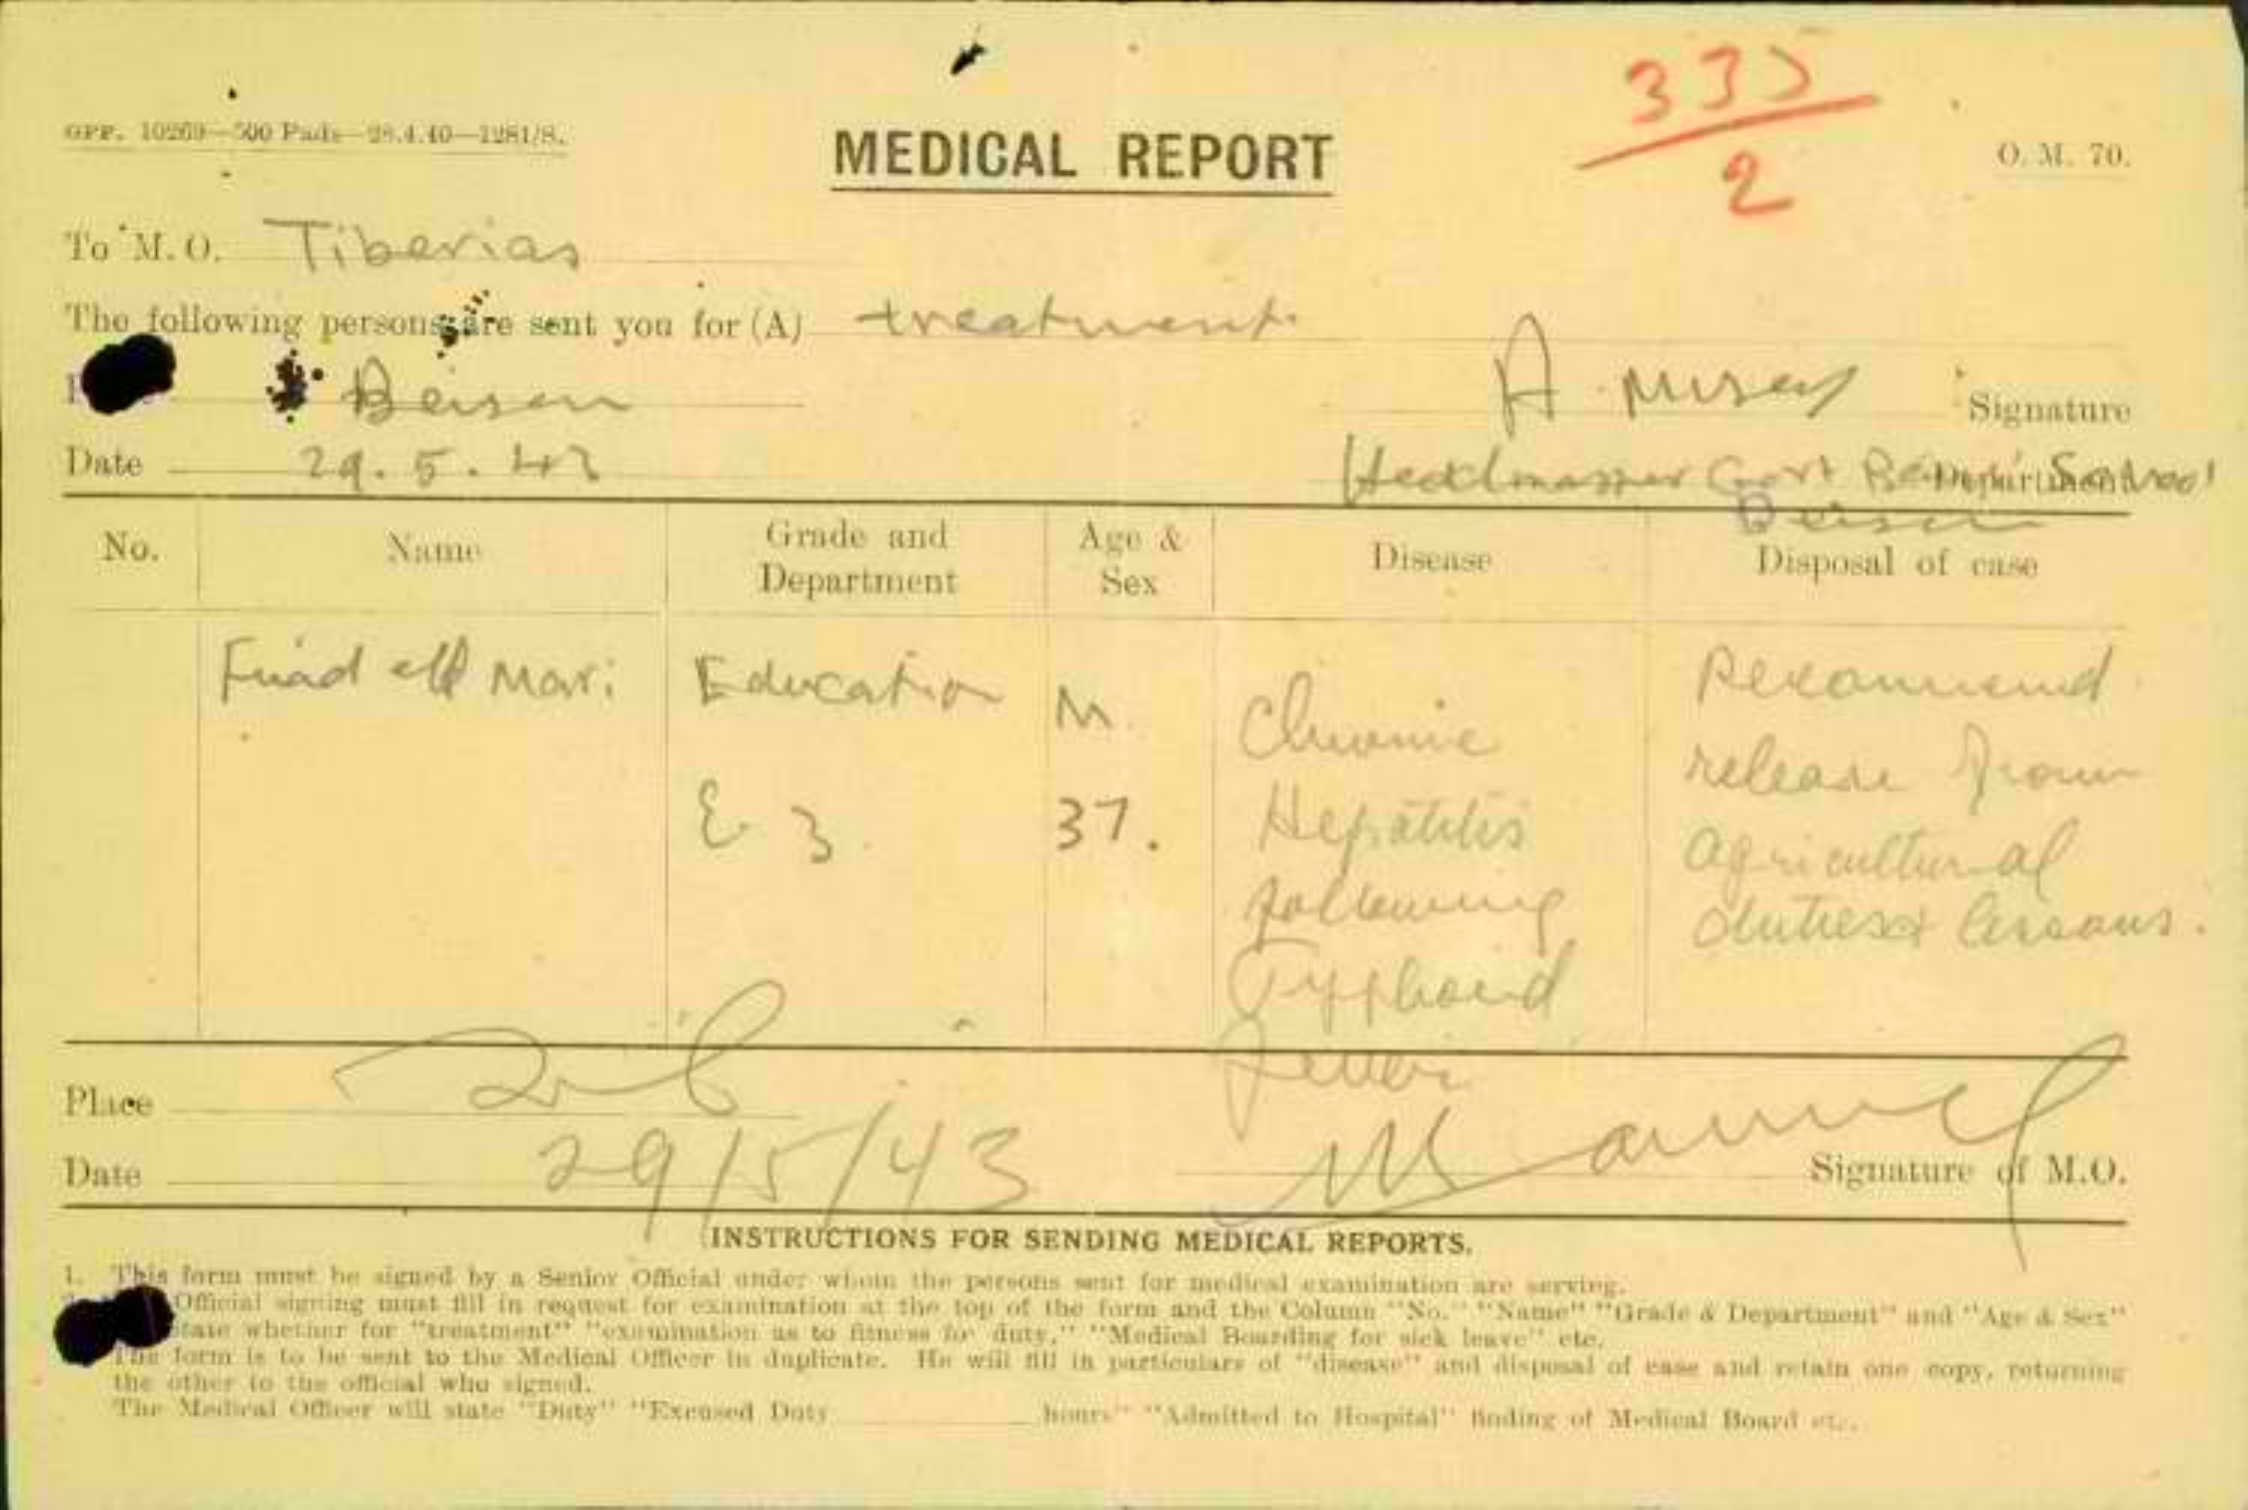 335
2
GPP. 10269—500 Pads—28.4.40—1281/S.
MEDICAL REPORT
O. M. 70.
To M. O. Tiberias
The following persons are sent you for (A) treatment
Beisan
A.
Signature
Date 29.5.43
Headmaster Govt School
Beisan
No.
Name
Grade and Department
Age & Sex
Disease
Disposal of case
Fuad eff Mari
Education
E 3.
M.
37.
Chronic
Hepatitis
following
Typhoid
fever
Recommend
release from
agricultural
duties & lessons.
Place
Date 29/5/43
Signature of M.O.
INSTRUCTIONS FOR SENDING MEDICAL REPORTS.
1. This form must be signed by a Senior Official under whom the persons sent for medical examination are serving.
Official signing must fill in request for examination at the top of the form and the Column "No." "Name" "Grade & Department" and "Age & Sex"
state whether for "treatment" "examination as to fitness for duty," "Medical Boarding for sick leave" etc.
The form is to be sent to the Medical Officer in duplicate. He will fill in particulars of "disease" and disposal of case and retain one copy, returning
the other to the official who signed.
The Medical Officer will state "Duty" "Excused Duty ______ hours" "Admitted to Hospital" finding of Medical Board etc.